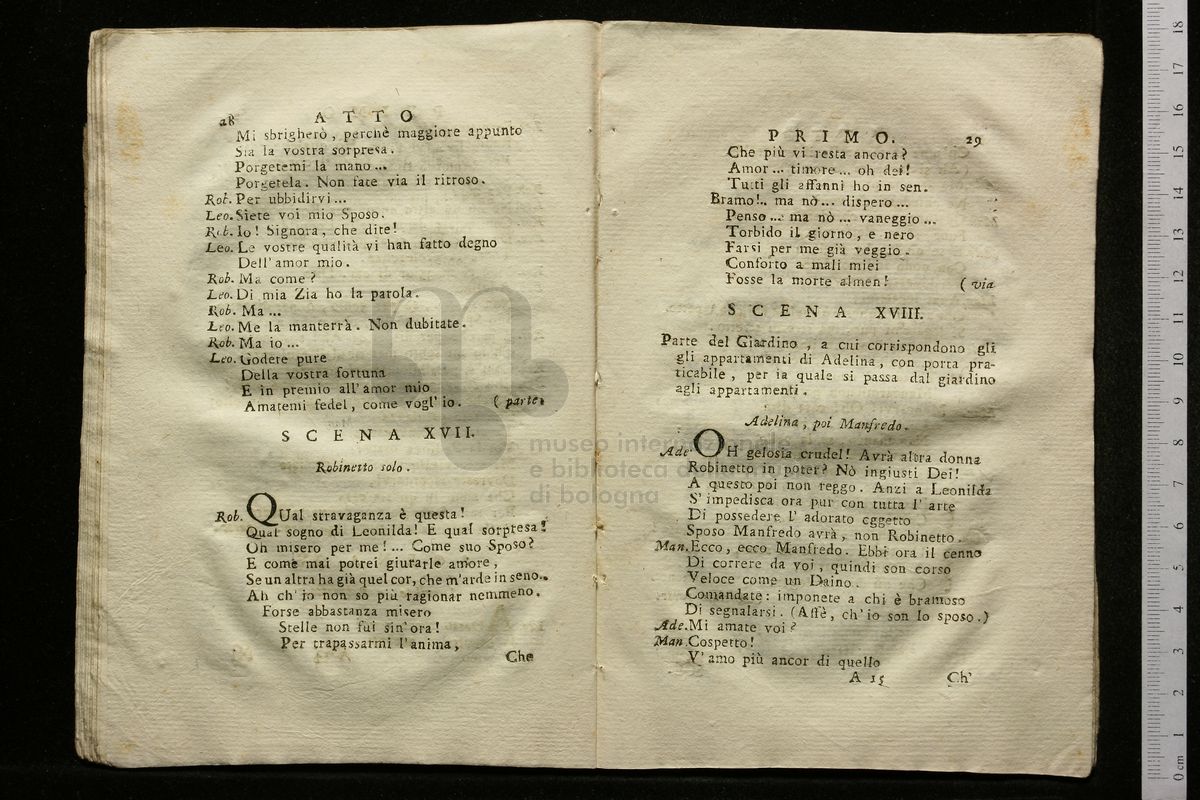 28 ATTO
Mi sbrigherò, perchè maggiore appunto
Sia la vostra sorpresa.
Porgetemi la mano...
Porgetela. Non fate via il ritroso.
Rob. Per ubbidirvi...
Leo. Siete voi mio Sposo.
Rob. Io! Signora, che dite!
Leo. Le vostre qualità vi han fatto degno
Dell'amor mio.
Rob. Ma come?
Leo. Di mia Zia ho la parola.
Rob. Ma...
Leo. Me la manterrà. Non dubitate.
Rob. Ma io...
Leo. Godere pure
Della vostra fortuna
E in premio all'amor mio
Amatemi fedel, come vogl'io. (parte.
SCENA XVII.
Robinetto solo.
Rob. QUal stravaganza è questa!
Qual sogno di Leonilda! E qual sorpresa!
Oh misero per me!... Come suo Sposo?
E come mai potrei giurarle amore,
Se un altra ha già quel cor, che m'arde in seno..
Ah ch'io non so più ragionar nemmeno.
Forse abbastanza misero
Stelle non fui sin'ora!
Per trapassarmi l'anima,
Che
PRIMO. 29
Che più vi resta ancora?
Amor... timore... oh dei!
Tutti gli affanni ho in sen.
Bramo!.. ma nò... dispero...
Penso... ma nò... vaneggio...
Torbido il giorno, e nero
Farsi per me già veggio.
Conforto a mali miei
Fosse la morte almen! (via
SCENA XVIII.
Parte del Giardino, a cui corrispondono gli
gli appartamenti di Adelina, con porta pra-
ticabile, per la quale si passa dal giardino
agli appartamenti.
Adelina, poi Manfredo.
Ade. OH gelosia crudel! Avrà altra donna
Robinetto in poter? Nò ingiusti Dei!
A questo poi non reggo. Anzi a Leonilda
S'impedisca ora pur con tutta l'arte
Di possedere l'adorato oggetto
Sposo Manfredo avrà, non Robinetto.
Man. Ecco, ecco Manfredo. Ebbi ora il cenno
Di correre da voi, quindi son corso
Veloce come un Daino.
Comandate: imponete a chi è bramoso
Di segnalarsi. (Affè, ch'io son lo sposo.)
Ade. Mi amate voi?
Man. Cospetto!
V'amo più ancor di quello
A 15 Ch'
museo internazionale
e biblioteca
di bologna
0 cm 1 2 3 4 5 6 7 8 9 10 11 12 13 14 15 16 17 18